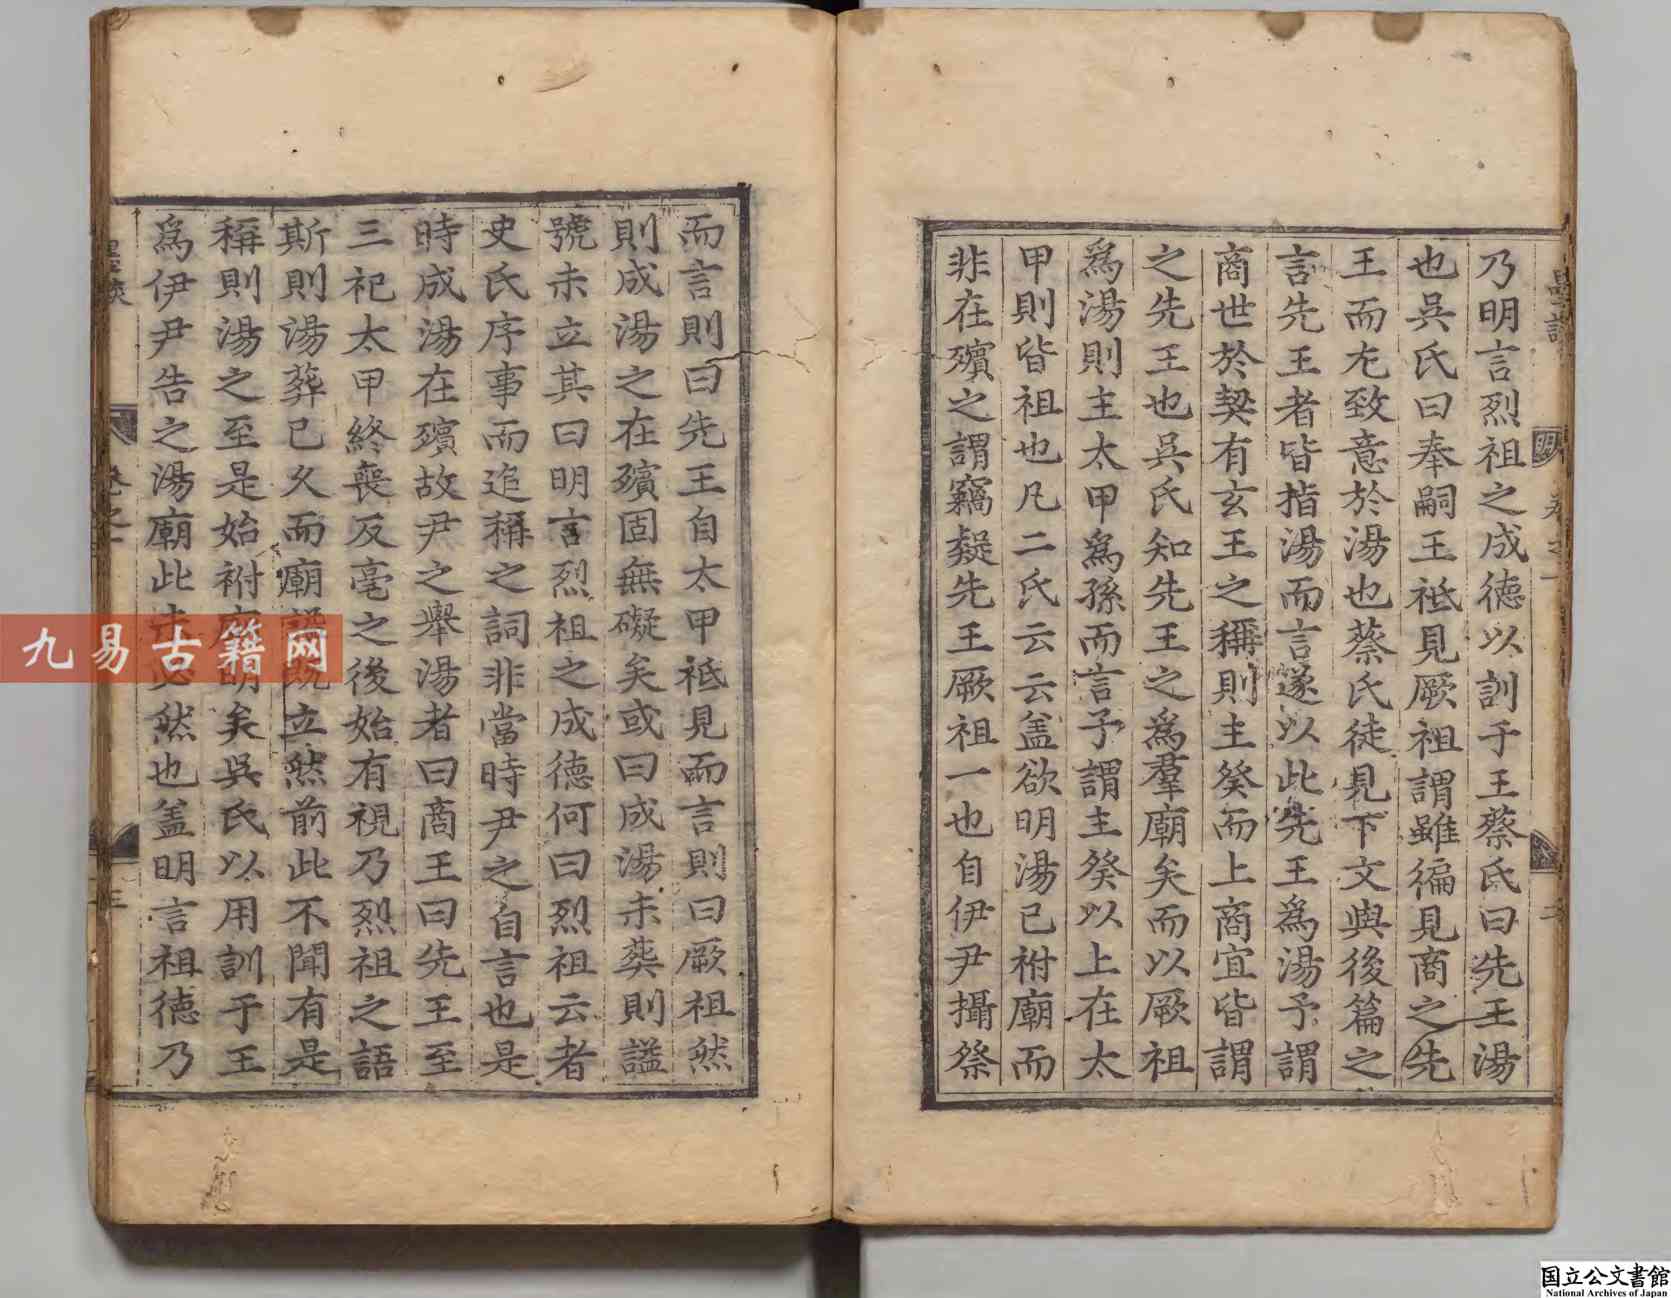 乃明言烈祖之成德以訓于王蔡氏曰先王湯
也吳氏曰奉嗣王祗見厥祖謂雖徧見商之先
王而尢致意於湯也蔡氏徒見下文與後篇之
言先王者皆指湯而言遂以此先王爲湯予謂
商世於契有玄王之稱則主癸而上商宜皆謂
之先王也吳氏知先王之爲羣廟矣而以厥祖
爲湯則主太甲爲孫而言予謂主癸以上在太
甲則皆祖也凡二氏云云盖欲明湯已祔廟而
非在殯之謂竊疑先王厥祖一也自伊尹攝祭
而言則曰先王自太甲祗見而言則曰厥祖然
則成湯之在殯固無礙矣或曰成湯未葬則謚
號未立其曰明言烈祖之成德何曰烈祖云者
史氏序事而追稱之詞非當時尹之自言也是
時成湯在殯故尹之舉湯者曰商王曰先王至
三祀太甲終喪反亳之後始有視乃烈祖之語
斯則湯葬已久而廟謚既立然前此不聞有是
稱則湯之至是始祔廟明矣吳氏以用訓于王
爲伊尹告之湯廟此未必然也盖明言祖德乃
卷之一
九易古籍网
国立公文書館
National Archives of Japan